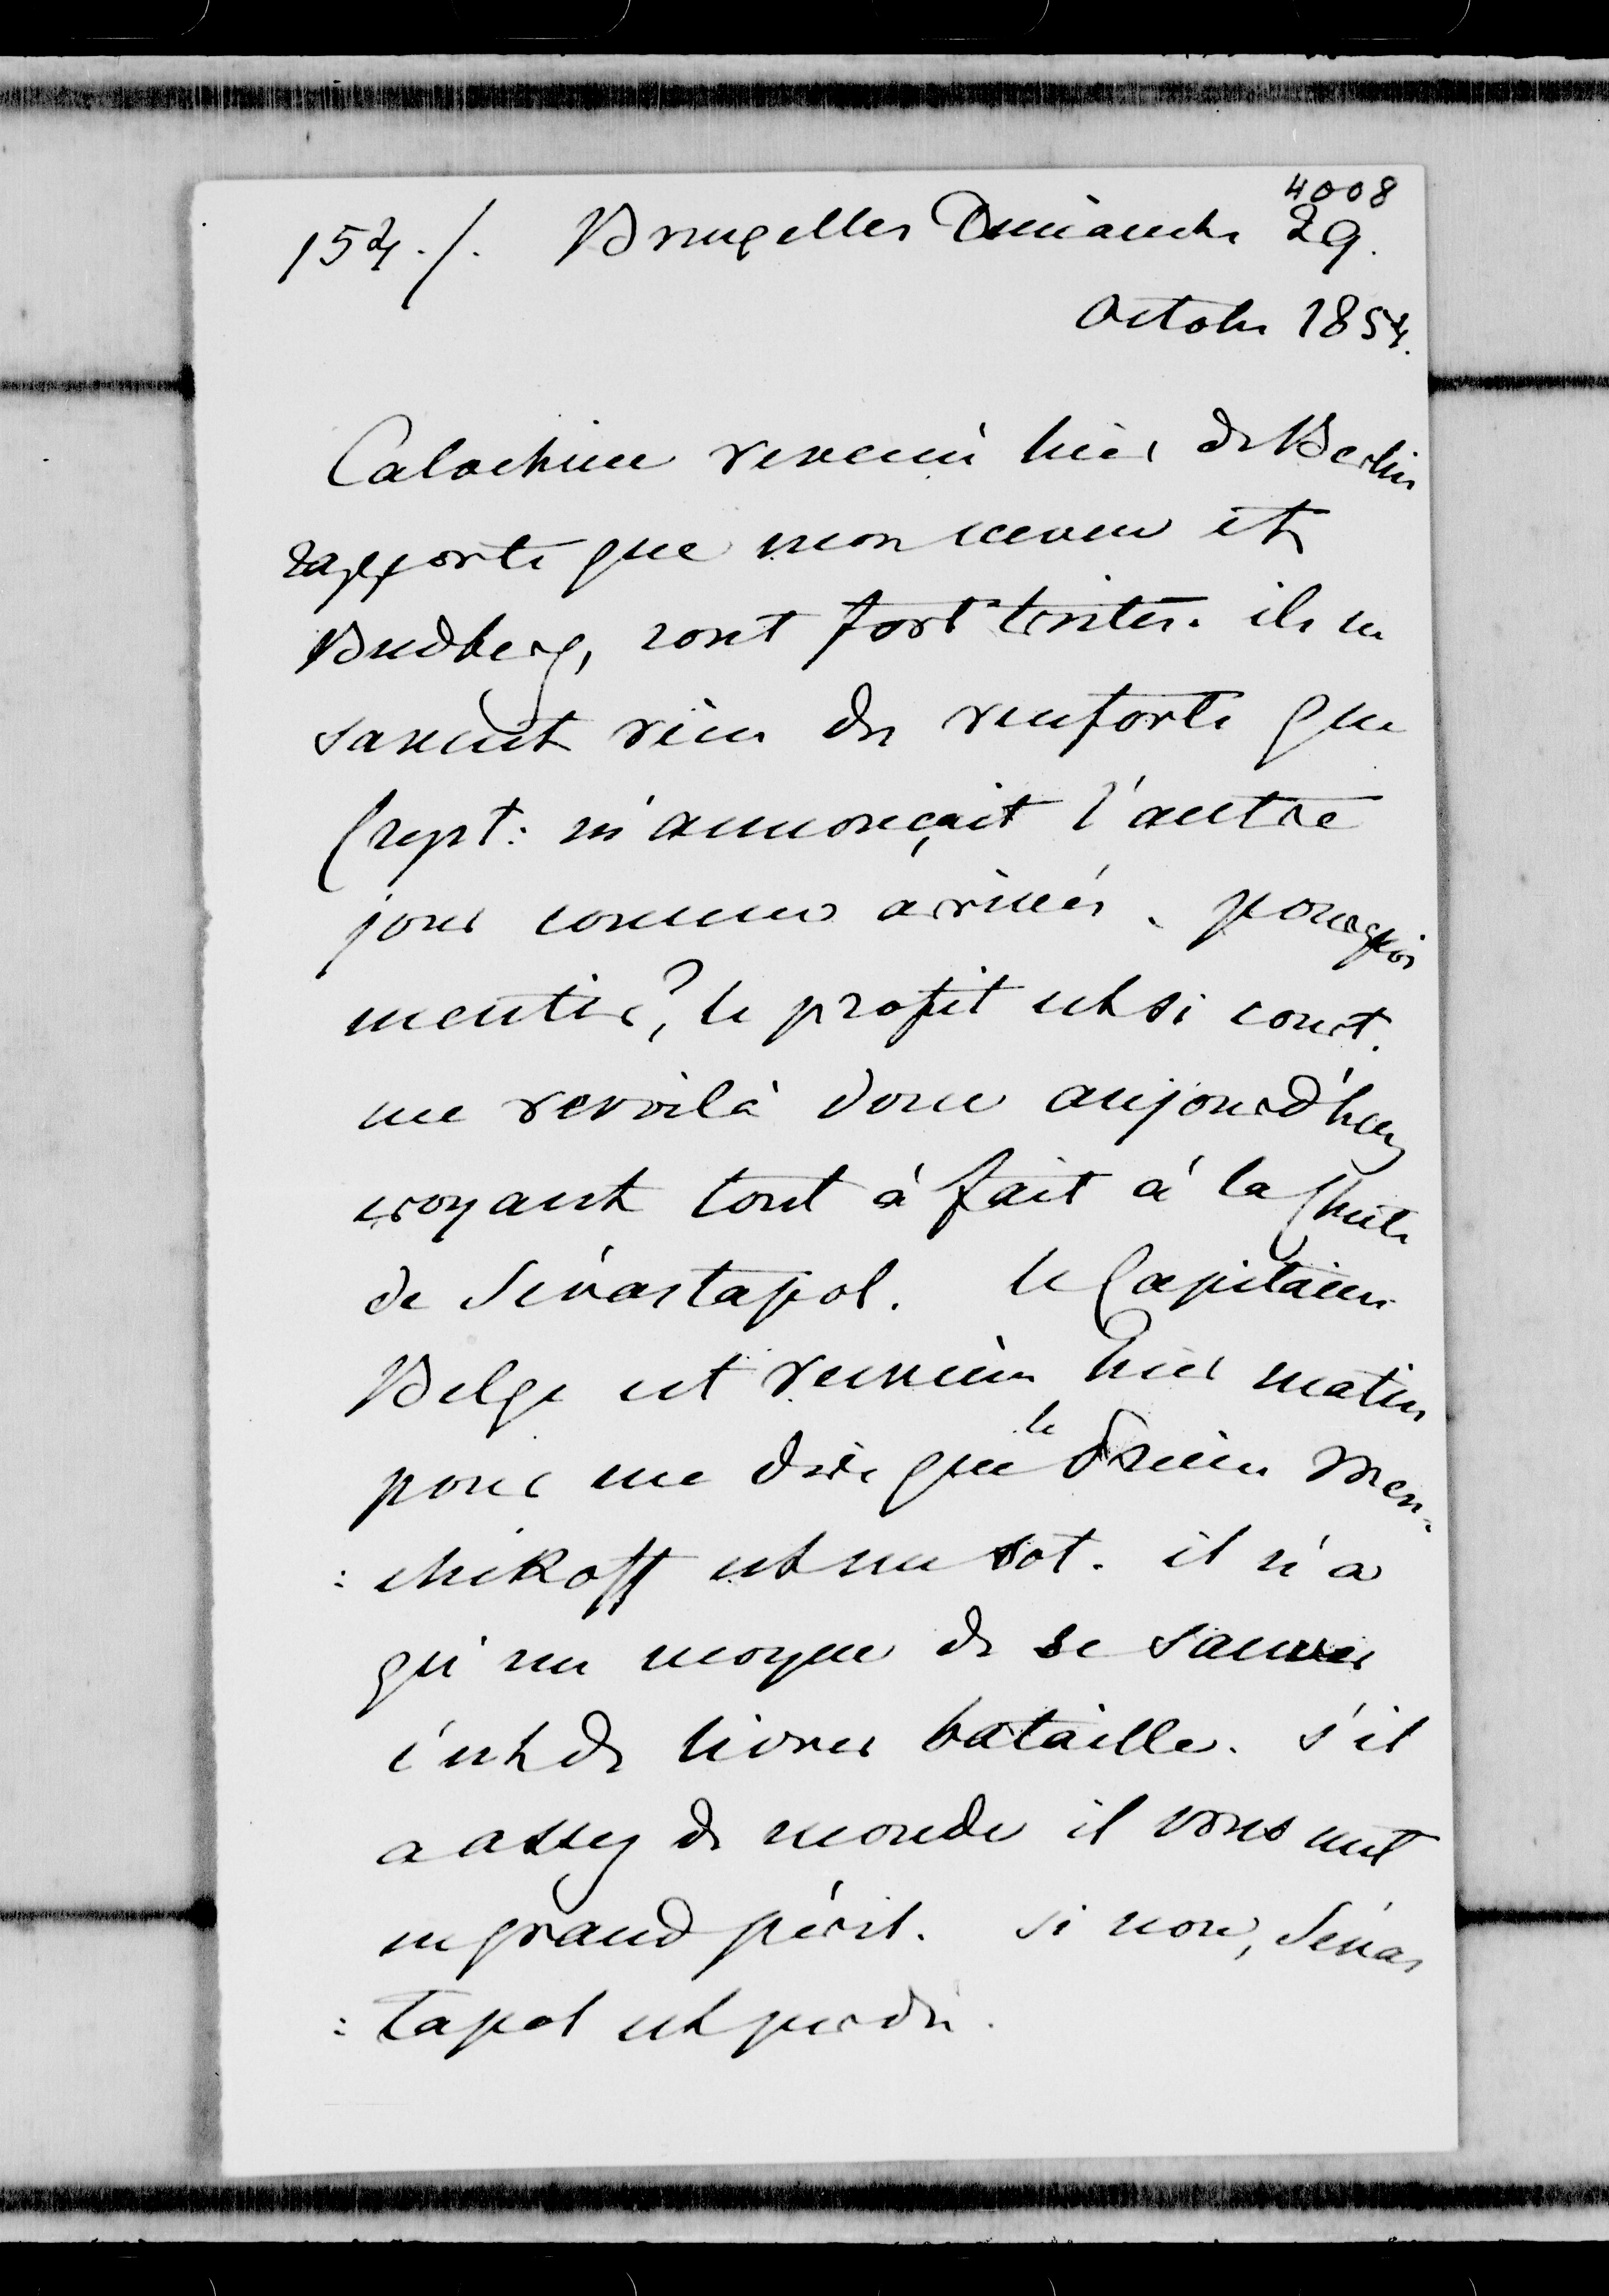 4008
154./. Bruxelles Dimanche 29.
Octobre 1854.
Calochine revenu hier de Berlin
rapporte que mon neveu et
Budberg, sont fort tristes. ils ne
savent rien des renforts que
Crept: m'annonçait l'autre
jour comme arrivés. pourquoi
mentir? le profit est si court.
me revoilà donc aujourd'hui
croyant tout à fait à la chute
de Sévastapol. le Capitaine
Belge est revenu hier matin
pour me dire que le Prince Men-
:chikoff est un sot. il n'a
qu'un moyen de se sauver
c'est de livrer bataille. s'il
a assez de monde il vous met
en grand péril. si non, Sévas
:tapol est perdu.